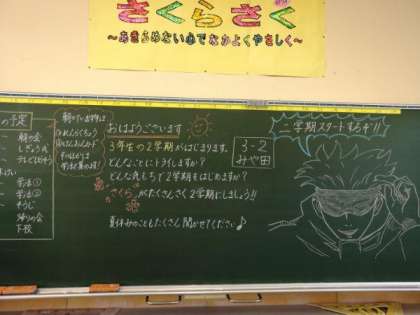 さくらさく
～あきらめない心でなかよくやさしく～
の予定
朝の会
しぎょう式
テレビほうそう
学活①
学活②
そうじ
帰りの会
下校
おはようございます
3年生の2学期がはじまります。
どんなことにトライしますか？
どんな気もちで2学期をはじめますか？
さくらがたくさんさく2学期にしましょう!!
夏休みのこともたくさん聞かせてください♪
3-2
みや田
二学期スタートするぞ!!